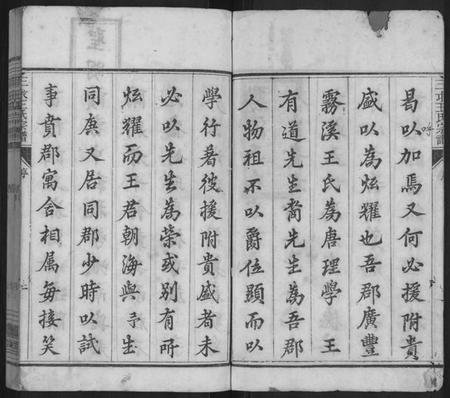 曷以加焉又何必援附貴
盛以為炫耀也吾郡廣豐
霧溪王氏為唐理學 王
有道先生裔先生為吾郡
人物祖不以爵位顯而以
學行著彼援附貴盛者未
必以先生為榮或別有所
炫耀而王君朝海與予生
同庚又居同郡少時以試
事賁郡寓舍相属每接笑